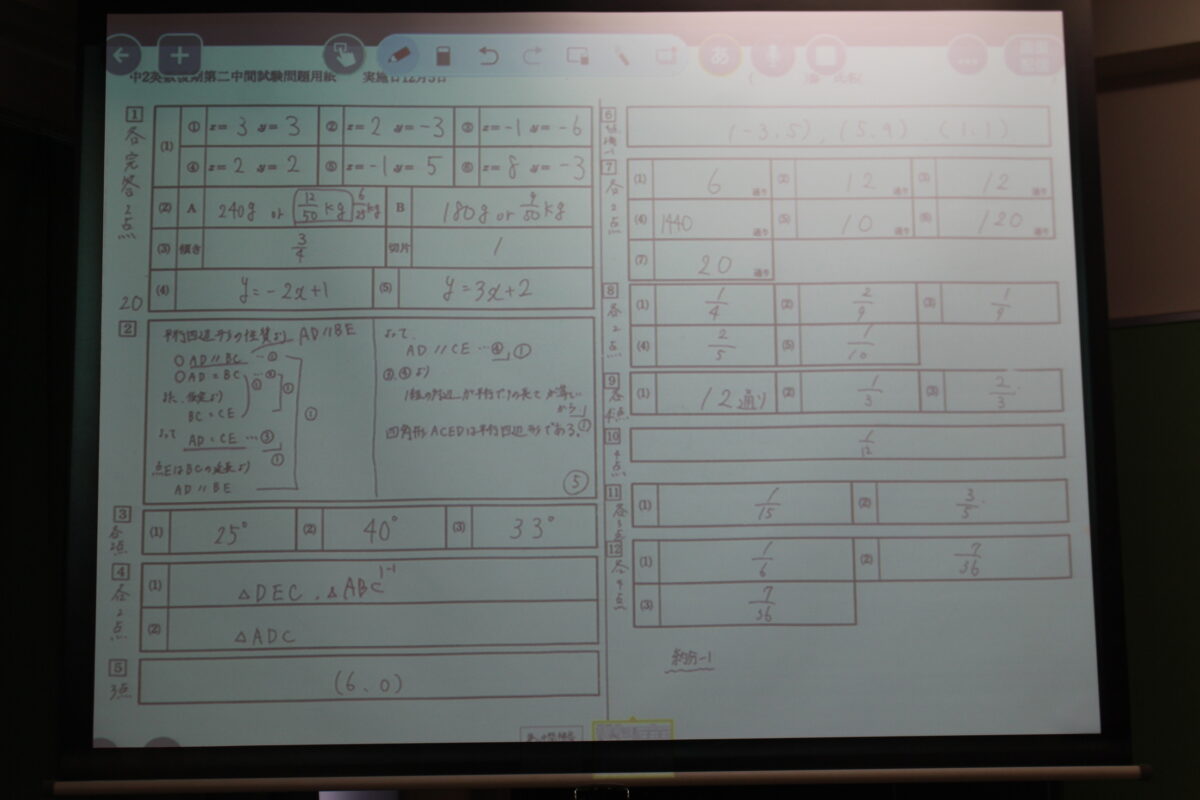 あ
中2英数後期第二中間試験問題用紙 実施日12月3日
1 各完答2点
(1) ① x= 3 y= 3 ② x= 2 y= -3 ③ x= -1 y= -6
④ x= 2 y= 2 ⑤ x= -1 y= 5 ⑥ x= 8 y= -3
(2) A 240g or 12/50 kg 6/25 kg B 180g or 9/50 kg
(3) 傾き 3/4 切片 1
(4) y=-2x+1 (5) y=3x+2
20
2
平行四辺形の性質より AD//BE
AD//BC …①
AD=BC …②
また、仮定より
BC=CE
よって AD=CE …③
点EはBCの延長より
AD//BE
よって
AD//CE …④ ①
③,④より
1組の対辺が平行で長さが等しいから
四角形ACEDは平行四辺形である。①
⑤
3 各2点
(1) 25° (2) 40° (3) 33°
4 各2点
(1) △DEC . △ABC
(2) △ADC
5 3点
(6、0)
6
(-3,5),(5,9),(1,1)
7 各2点
(1) 6 通り (2) 12 通り (3) 12 通り
(4) 1440 通り (5) 10 通り (6) 120 通り
(7) 20 通り
8 各2点
(1) 1/4 (2) 2/9 (3) 1/9
(4) 2/5 (5) 1/10
9 各4点
(1) 12通り (2) 1/3 (3) 2/3
10 4点
1/12
11 各3点
(1) 1/15 (2) 3/5
12 各4点
(1) 1/6 (2) 7/36
(3) 7/36
約分-1